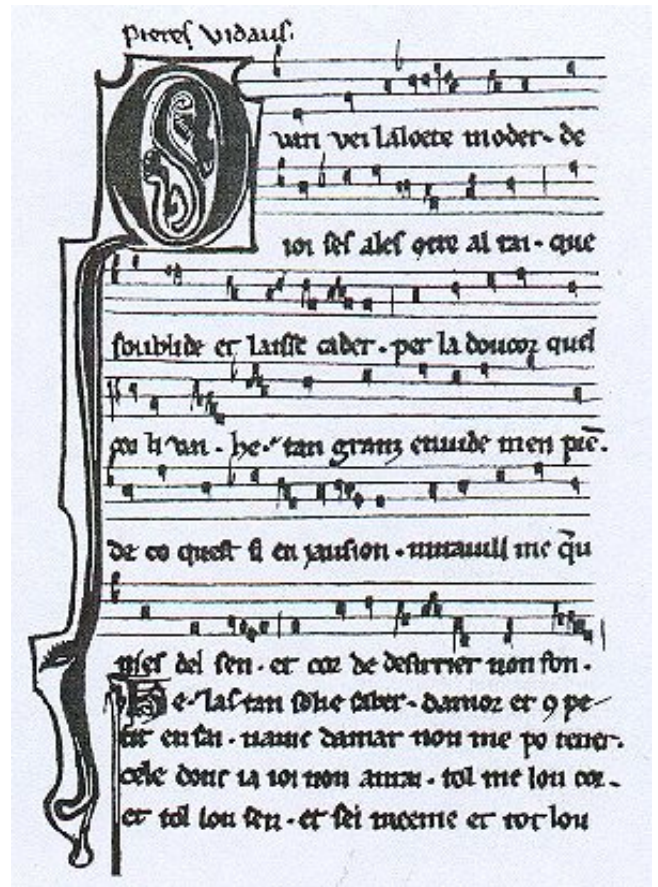 pieres vidaus.
Quan vei laloete moder. de
ioi ses ales 9tre al rai. que
soublide et laisse cader. per la doucor quel
cor li van. he. tan granz enuide men pie.
de co quest si en iausion. miravill me
nies del sen. et cor de desirrier non fon.
He. las tan cuidie saber. damor et 9 pe
tit en sai. damar non me po tener.
cele donc ia ioi non aurai. tol me lou cor.
et tol lou sen. et sei meeme et tot lou